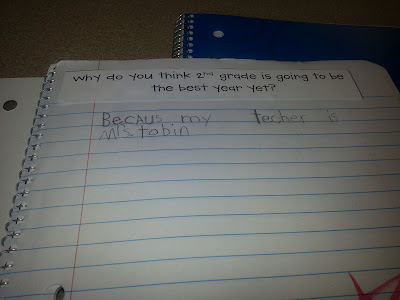 Why do you think 2nd grade is going to be
the best year yet?
Becaus my techer is
Mrs. tobin